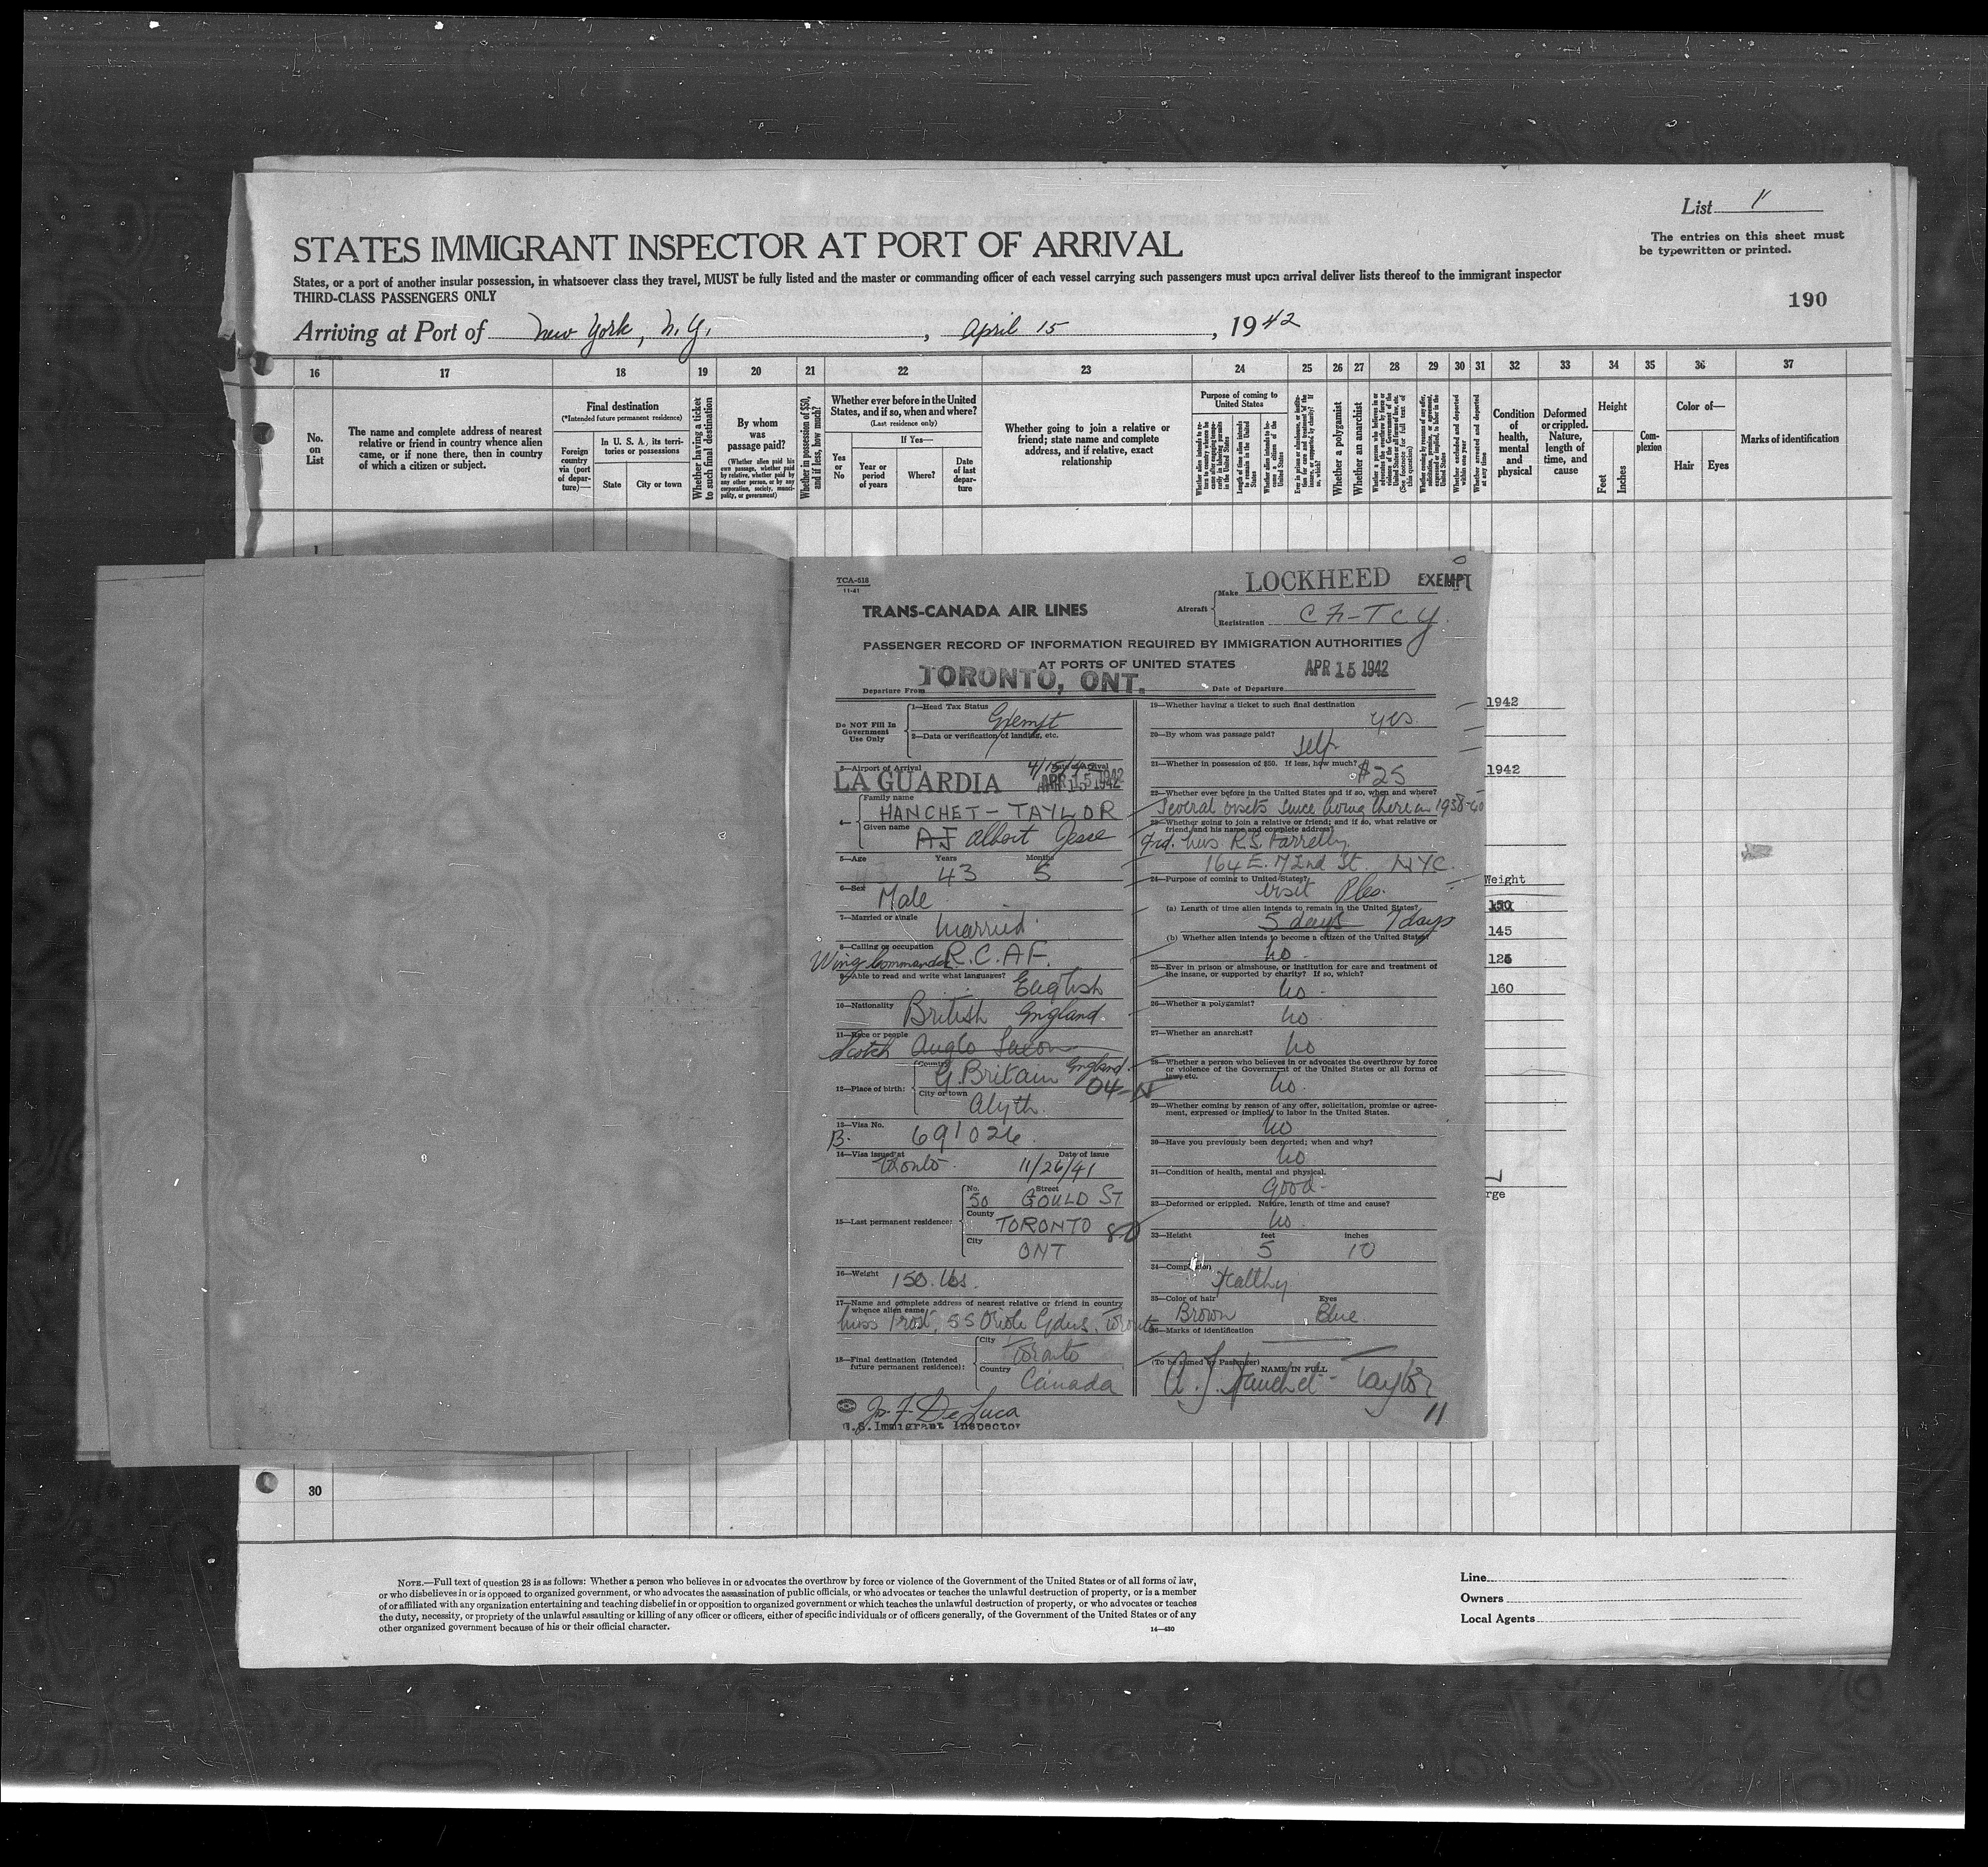 List 11
The entries on this sheet must
be typewritten or printed.
STATES IMMIGRANT INSPECTOR AT PORT OF ARRIVAL
States, or a port of another insular possession, in whatsoever class they travel, MUST be fully listed and the master or commanding officer of each vessel carrying such passengers must upon arrival deliver lists thereof to the immigrant inspector
THIRD-CLASS PASSENGERS ONLY
190
Arriving at Port of New York, N.Y., April 15, 1942
16 17 18 19 20 21 22 23 24 25 26 27 28 29 30 31 32 33 34 35 36 37
No.
on
List
The name and complete address of nearest
relative or friend in country whence alien
came, or if none there, then in country
of which a citizen or subject.
Final destination
(*Intended future permanent residence)
Foreign
country
via (port
of depar-
ture)—
In U. S. A., its terri-
tories or possessions
State
City or town
Whether having a ticket
to such final destination
By whom
was
passage paid?
(Whether alien paid his
own passage, whether paid
by relative, whether paid by
any other person, or by any
corporation, society, munici-
pality, or government)
Whether in possession of $50,
and if less, how much?
Whether ever before in the United
States, and if so, when and where?
(Last residence only)
Yes
or
No
If Yes—
Year or
period
of years
Where?
Date
of last
depar-
ture
Whether going to join a relative or
friend; state name and complete
address, and if relative, exact
relationship
Purpose of coming to
United States
Length of time alien intends
to remain in the United
States
Whether a polygamist
Whether an anarchist
Condition
of
health,
mental
and
physical
Deformed
or crippled.
Nature,
length of
time, and
cause
Height
Feet
Inches
Com-
plexion
Color of—
Hair
Eyes
Marks of identification
1
TCA-518
11-41
TRANS-CANADA AIR LINES
Aircraft
Make LOCKHEED
EXEMPT
Registration CF-TCY
PASSENGER RECORD OF INFORMATION REQUIRED BY IMMIGRATION AUTHORITIES
AT PORTS OF UNITED STATES
Departure From TORONTO, ONT.
Date of Departure APR 15 1942
Do NOT Fill In
Government
Use Only
1—Head Tax Status
Exempt
2—Data or verification of landing, etc.
3—Airport of Arrival
Date of Arrival
LA GUARDIA APR 15 1942
4—
Family name
HANCHET-TAYLOR
Given name
AJ Albert Jesse
5—Age
Years 43
Months 5
6—Sex
Male
7—Married or single
Married
8—Calling or occupation
Wing Commander R.C.A.F.
9—Able to read and write what languages?
English
10—Nationality
British England
11—Race or people
Scotch Anglo Saxon
12—Place of birth:
Country
G. Britain England
04-
City or town
Alyth
13—Visa No.
B. 691026
14—Visa issued at
Toronto
Date of issue
11/26/41
15—Last permanent residence:
No. 50
Street GOULD ST
County
TORONTO 80
City
ONT
16—Weight
150 lbs.
17—Name and complete address of nearest relative or friend in country
whence alien came
Miss Frost, 55 Oriole Gdns. Toronto
18—Final destination (Intended
future permanent residence):
City
Toronto
Country
Canada
U.S. Immigrant Inspector
19—Whether having a ticket to such final destination
yes
20—By whom was passage paid?
Self
21—Whether in possession of $50. If less, how much?
$25
22—Whether ever before in the United States and if so, when and where?
Several visits since living there in 1938-40
23—Whether going to join a relative or friend; and if so, what relative or
friend, and his name and complete address?
Frd. Mrs R.S. Farrelly
164 E. 72nd St NYC.
24—Purpose of coming to United States?
Visit Pleo.
(a) Length of time alien intends to remain in the United States?
5 days 7 days
(b) Whether alien intends to become a citizen of the United States?
no
25—Ever in prison or almshouse, or institution for care and treatment of
the insane, or supported by charity? If so, which?
no
26—Whether a polygamist?
no
27—Whether an anarchist?
no
28—Whether a person who believes in or advocates the overthrow by force
or violence of the Government of the United States or all forms of
law, etc.
no
29—Whether coming by reason of any offer, solicitation, promise or agree-
ment, expressed or implied, to labor in the United States.
no
30—Have you previously been deported; when and why?
no
31—Condition of health, mental and physical.
Good
32—Deformed or crippled. Nature, length of time and cause?
no
33—Height
feet 5
inches 10
34—Complexion
Healthy
35—Color of hair
Brown
Eyes
Blue
36—Marks of identification
(To be signed by Passenger)
NAME IN FULL
A. J. Hanchet-Taylor
11
J. F. De Luca
1942
1942
Weight
150
145
125
160
rge
30
NOTE.—Full text of question 28 is as follows: Whether a person who believes in or advocates the overthrow by force or violence of the Government of the United States or of all forms of law,
or who disbelieves in or is opposed to organized government, or who advocates the assassination of public officials, or who advocates or teaches the unlawful destruction of property, or is a member
of or affiliated with any organization entertaining and teaching disbelief in or opposition to organized government or which teaches the unlawful destruction of property, or who advocates or teaches
the duty, necessity, or propriety of the unlawful assaulting or killing of any officer or officers, either of specific individuals or of officers generally, of the Government of the United States or of any
other organized government because of his or their official character.
14—430
Line
Owners
Local Agents